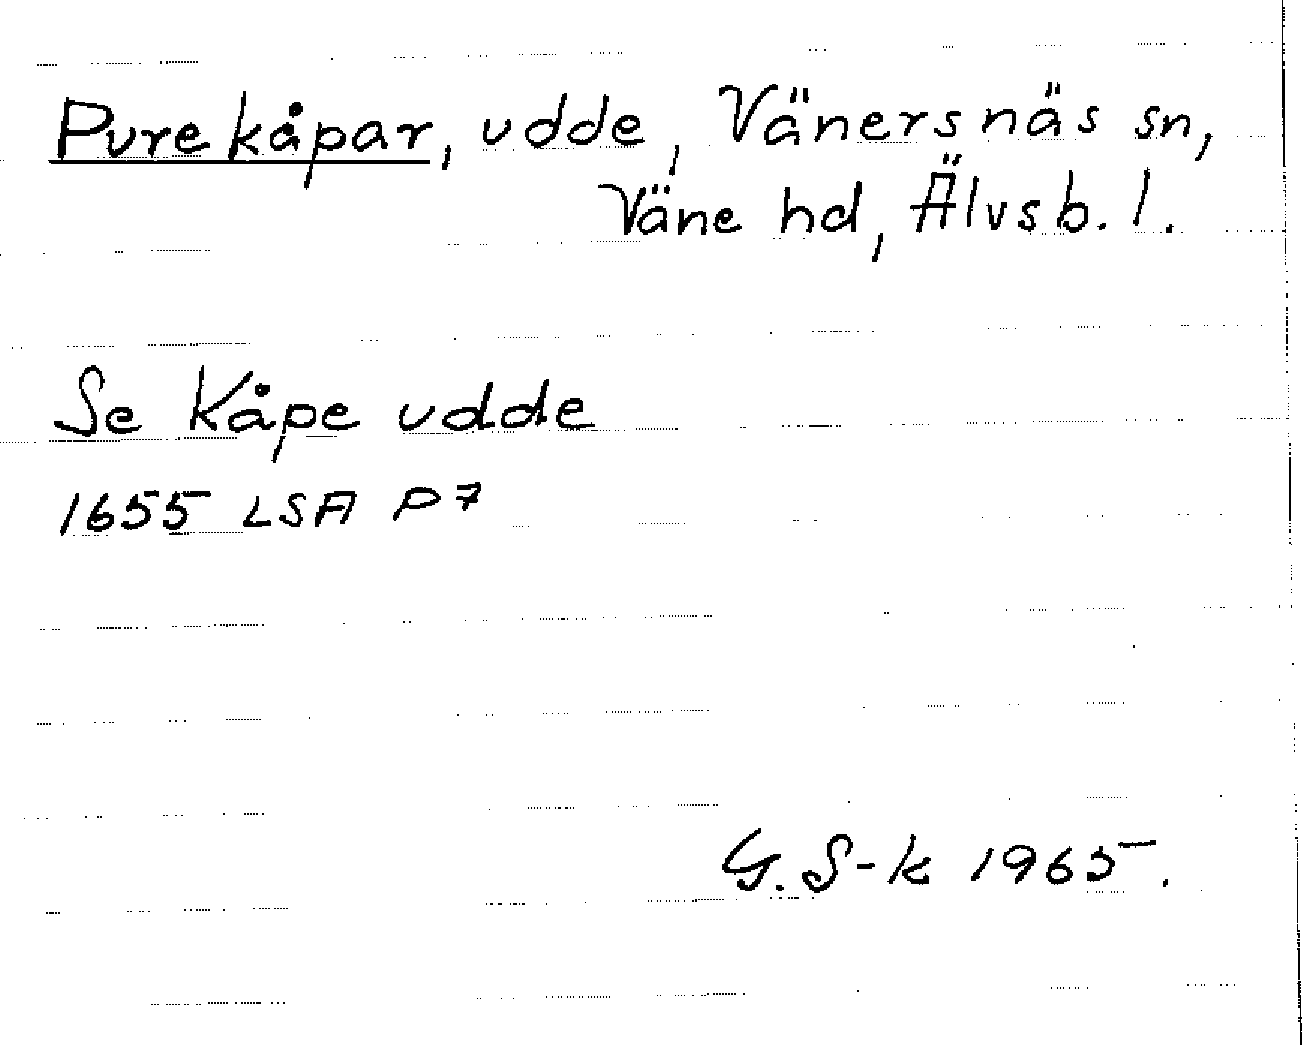 Purekåpar, udde, Vänersnäs sn,
Väne hd, Älvsb. l.
Se Kåpe udde
1655 LSA P7
G. S-k 1965.